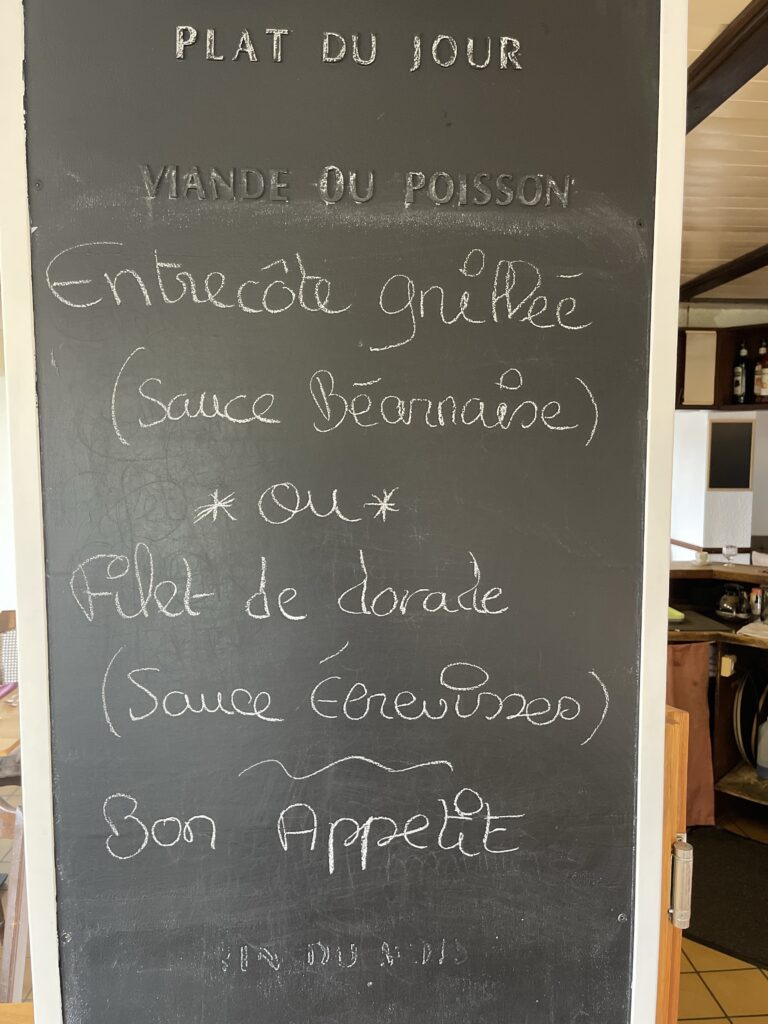 PLAT DU JOUR
VIANDE OU POISSON
Entrecôte grillée
(Sauce Béarnaise)
* Ou *
Filet de dorade
(Sauce Écrevisses)
Bon Appetit
VIN DU MOIS